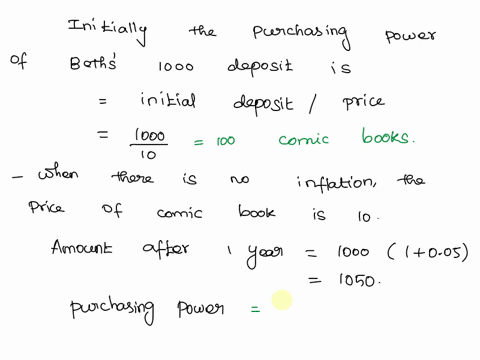 Initially the purchasing power
of Beths' 1000 deposit is
= initial deposit / price
= 1000/10 = 100 comic books.
- when there is no inflation, the
Price of comic book is 10.
Amount after 1 year = 1000 (1+0.05)
= 1050.
purchasing power =